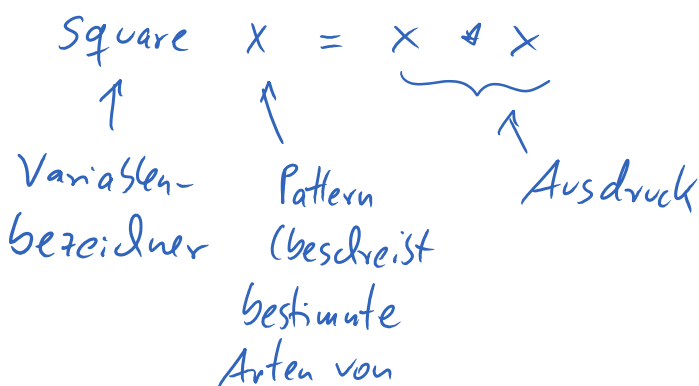 square x = x * x
Variablen-
bezeichner
Pattern
(beschreibt
bestimmte
Arten von
Ausdruck